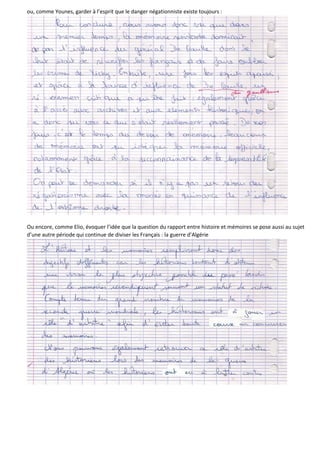 ou, comme Younes, garder à l'esprit que le danger négationniste existe toujours :
Pour conclure, nous avons donc vu que dans
un premier temps la mémoire résistante dominait
de par l'influence du général De Gaulle dont le
but était de réunifier les français et de faire oublier
les crimes de Vichy. Ensuite, une fois les esprits apaisés
et grâce à la baisse d'influence de De Gaulle un
du gaullisme
ré examen
a pu être fait également grâce
à l'accès aux archives et aux éléments historiques, on
a donc pu voir ce qui s'était réellement passé. De nos
jours c'est le temps du devoir de mémoire, beaucoup
de mémoires ont pu intégrer la mémoire officielle,
notamment grâce à la reconnaissance de la responsabilité
de l'Etat.
On peut se demander si il n'y a pas un retour du
négationnisme avec la montée en puissance de l'influence
de l'extrême droite.
Ou encore, comme Elio, évoquer l'idée que la question du rapport entre histoire et mémoires se pose aussi au sujet
d'une autre période qui continue de diviser les Français : la guerre d'Algérie
L'histoire et les mémoires remplissent donc des
objectifs différents car les historiens tentent d'établir
une vision la plus objective possible du passé tandis
que les mémoires revendiquent souvent un statut de victime.
Compte tenu du grand nombre de mémoires de la
seconde guerre mondiale, les historiens ont à jouer un
rôle d'arbitre afin d'éviter toute
des mémoires.
Nous pouvons également retrouver ce rôle d'arbitre
des historiens lors des mémoires de la guerre
d'Algérie où les historiens ont eu à lutter contre